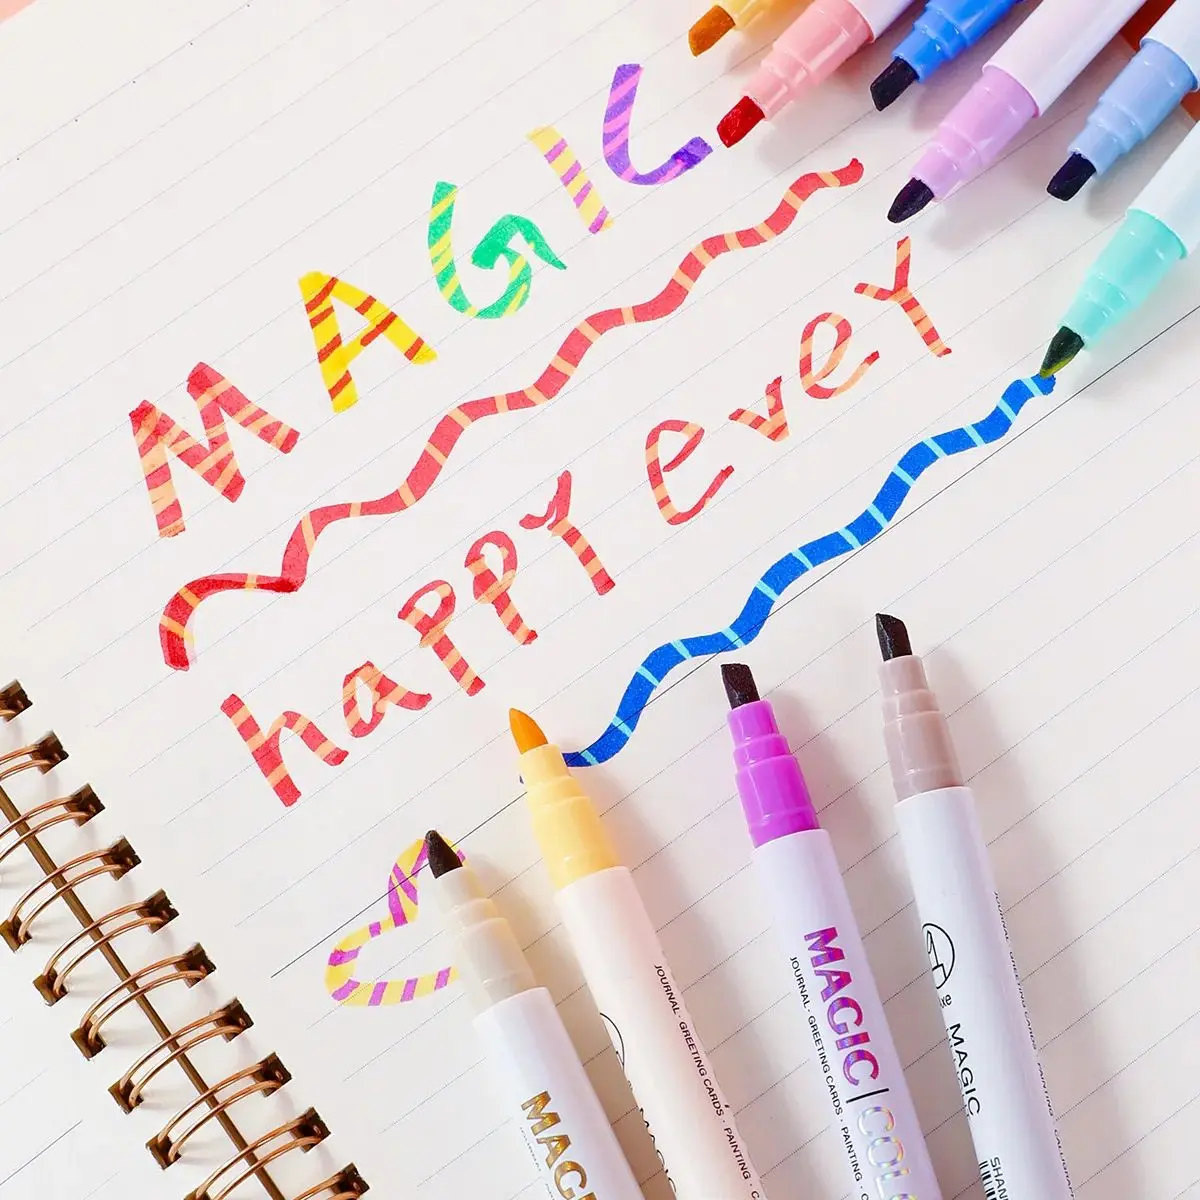 MAGIC
happy every
MAGIC
JOURNAL · GREETING CARDS · PAINTING
MAGIC | COLO
JOURNAL · GREETING CARDS · PAINTING ·
MAGIC
JOURNAL · GREETING CARDS · PAINTING